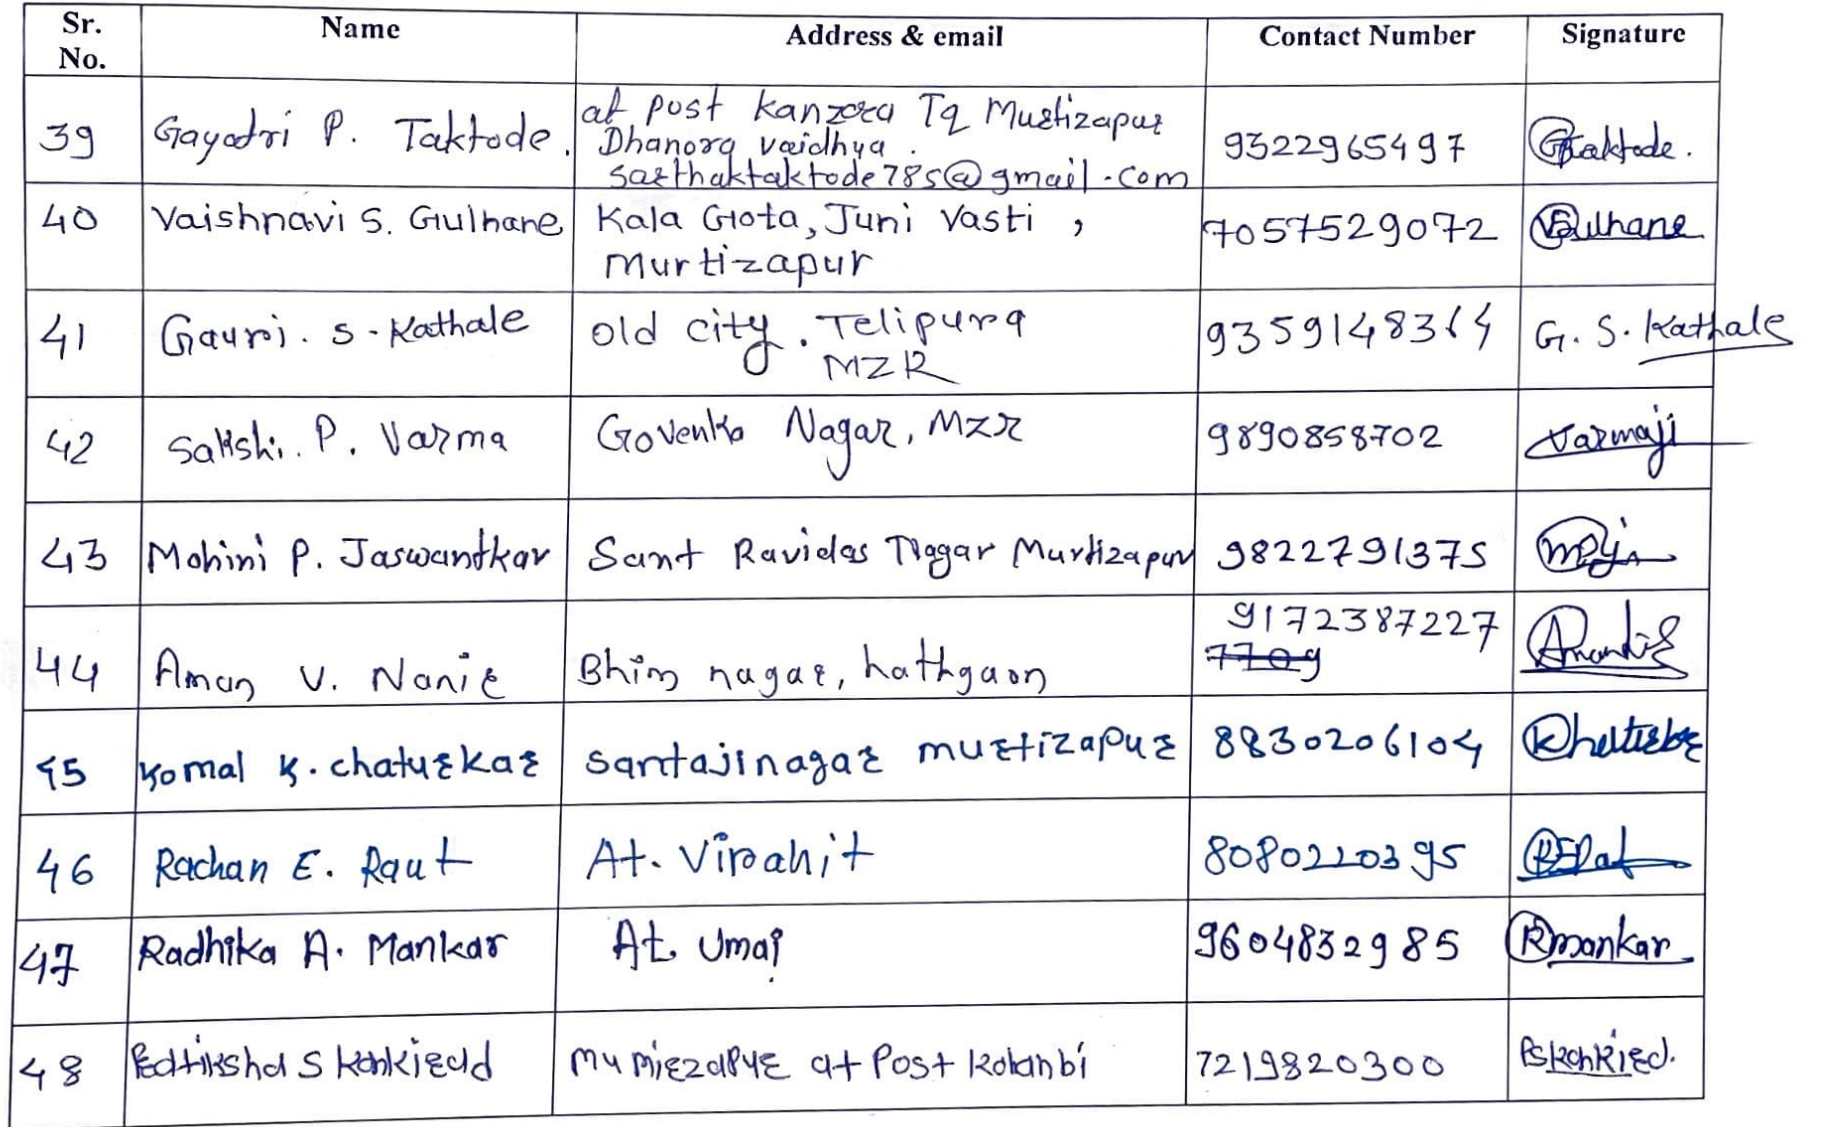 Sr. No. Name Address & email Contact Number Signature
39 Gayatri P. Taktode. at post kanzara Tq Murtizapur 9322965497 Gtaktode.
Dhanora vaidhya.
sarthaktaktode785@gmail.com
40 Vaishnavi S. Gulhane Kala Gota, Juni Vasti, 7057529072 VGulhane
Murtizapur
41 Gauri. S. Kathale Old city. Telipura 9359148364 G. S. Kathale
MZR
42 Sakshi. P. Varma Govenka Nagar, MZR 9890858702 Varmaji
43 Mohini P. Jaswantkar Sant Ravidas Nagar Murtizapur 9822791375
44 Aman V. Nanir Bhim nagar, hathgaon 9172387227
7709
45 Komal K. chaturkar santajinagar murtizapur 8830206104
46 Rachan E. Raut At. Virahit 8080220395
47 Radhika A. Mankar At. Umai 9604832985 Rmankar
48 S at Post kolanbi 7219820300